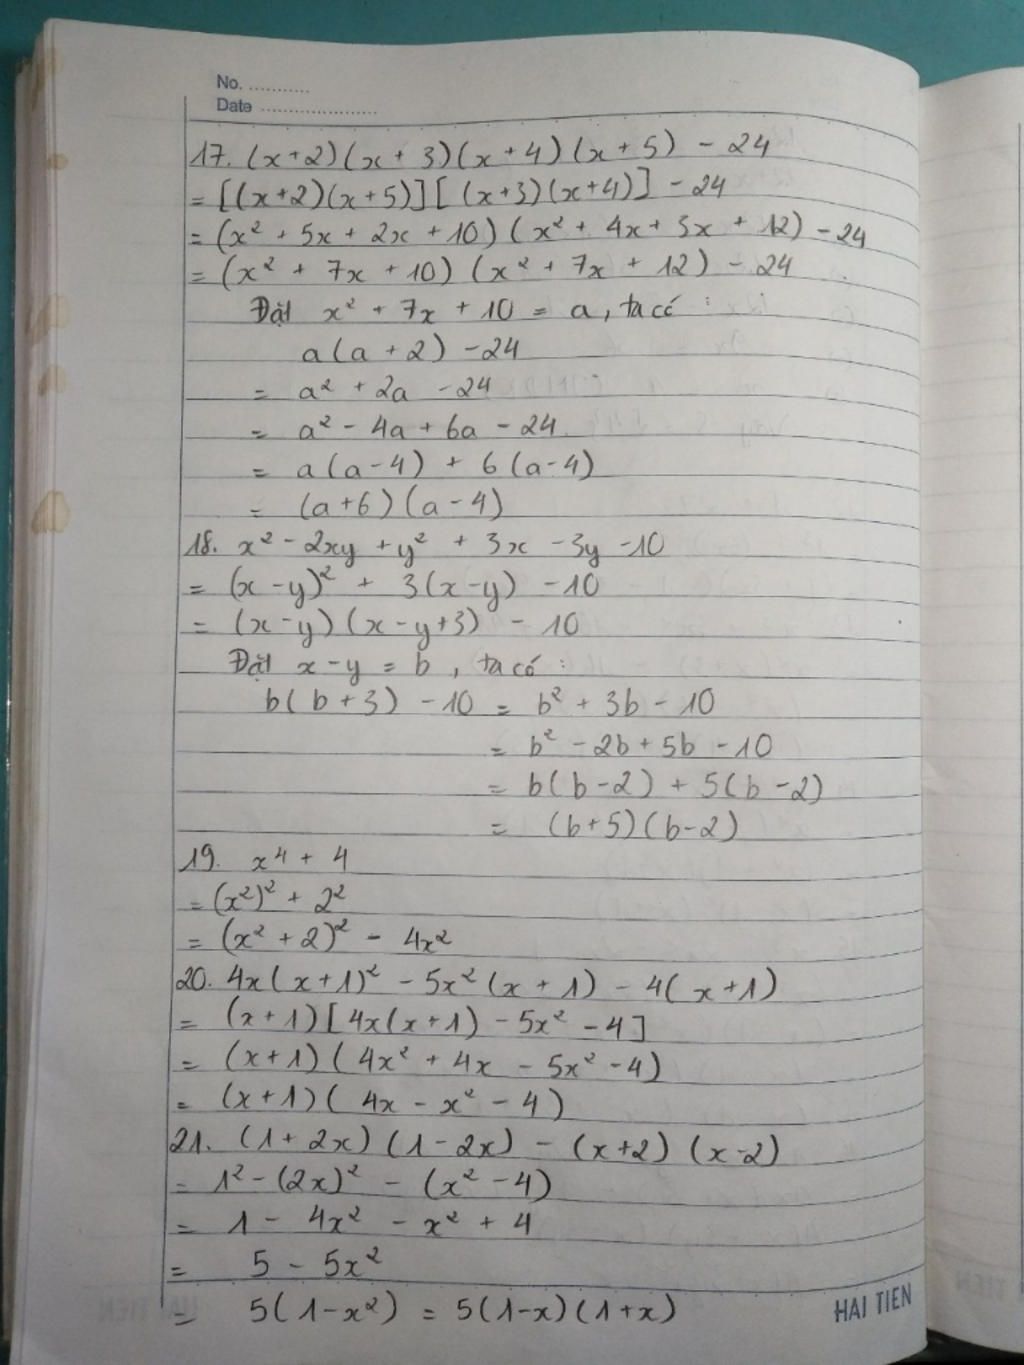 No. ...........
Date .....................
17. (x+2)(x+3)(x+4)(x+5) - 24
= [(x+2)(x+5)][(x+3)(x+4)] - 24
= (x² + 5x + 2x + 10)(x² + 4x + 3x + 12) - 24
= (x² + 7x + 10)(x² + 7x + 12) - 24
Đặt x² + 7x + 10 = a, ta có :
a(a + 2) - 24
= a² + 2a - 24
= a² - 4a + 6a - 24
= a(a-4) + 6(a-4)
= (a+6)(a-4)
18. x² - 2xy + y² + 3x - 3y - 10
= (x-y)² + 3(x-y) - 10
= (x-y)(x-y+3) - 10
Đặt x-y = b, ta có :
b(b+3) - 10 = b² + 3b - 10
= b² - 2b + 5b - 10
= b(b-2) + 5(b-2)
= (b+5)(b-2)
19. x⁴ + 4
= (x²)² + 2²
= (x² + 2)² - 4x²
20. 4x(x+1)² - 5x²(x+1) - 4(x+1)
= (x+1)[4x(x+1) - 5x² - 4]
= (x+1)(4x² + 4x - 5x² - 4)
= (x+1)(4x - x² - 4)
21. (1+2x)(1-2x) - (x+2)(x-2)
= 1² - (2x)² - (x² - 4)
= 1 - 4x² - x² + 4
= 5 - 5x²
= 5(1-x²) = 5(1-x)(1+x)
HAI TIEN